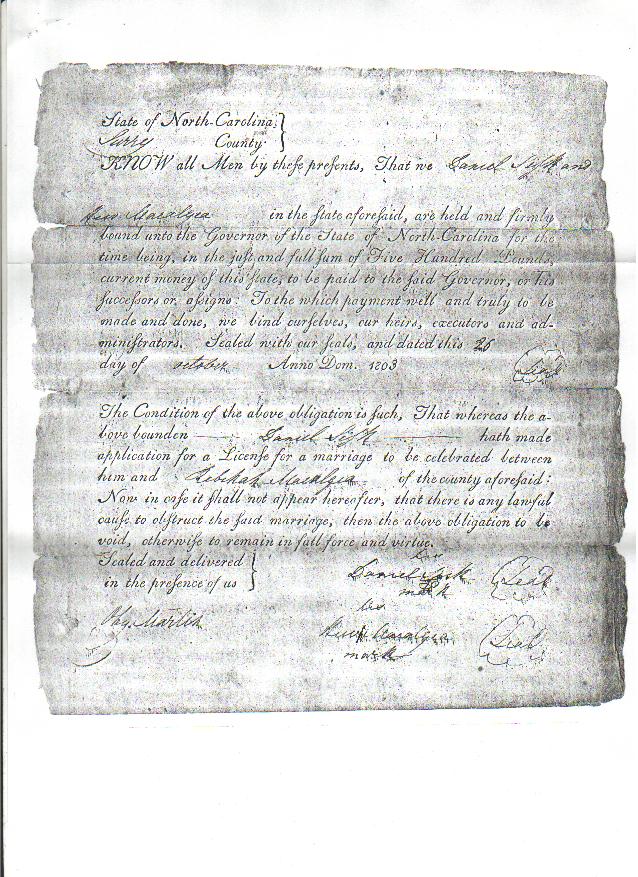 State of North-Carolina, }
Surry County: }
KNOW all Men by theſe preſents, That we Daniel Siſk and
Macalyea in the ſtate aforeſaid, are held and firmly
bound unto the Governor of the State of North-Carolina for the
time being, in the juſt and full ſum of Five Hundred Pounds,
current money of this ſtate, to be paid to the ſaid Governor, or his
ſucceſſors or aſſigns: To the which payment well and truly to be
made and done, we bind ourſelves, our heirs, executors and ad-
miniſtrators. Sealed with our ſeals, and dated this 26
day of october Anno Dom. 1803
Seal
The Condition of the above obligation is ſuch, That whereas the a-
bove bounden Daniel Siſk hath made
application for a Licenſe for a marriage to be celebrated between
him and Rebekah Macalyea of the county aforeſaid:
Now in caſe it ſhall not appear hereafter, that there is any lawful
cauſe to obſtruct the ſaid marriage, then the above obligation to be
void, otherwiſe to remain in full force and virtue.
Sealed and delivered }
in the preſence of us }
his
Daniel Sisk Seal
mark
Martin
his
Macalyea Seal
mark